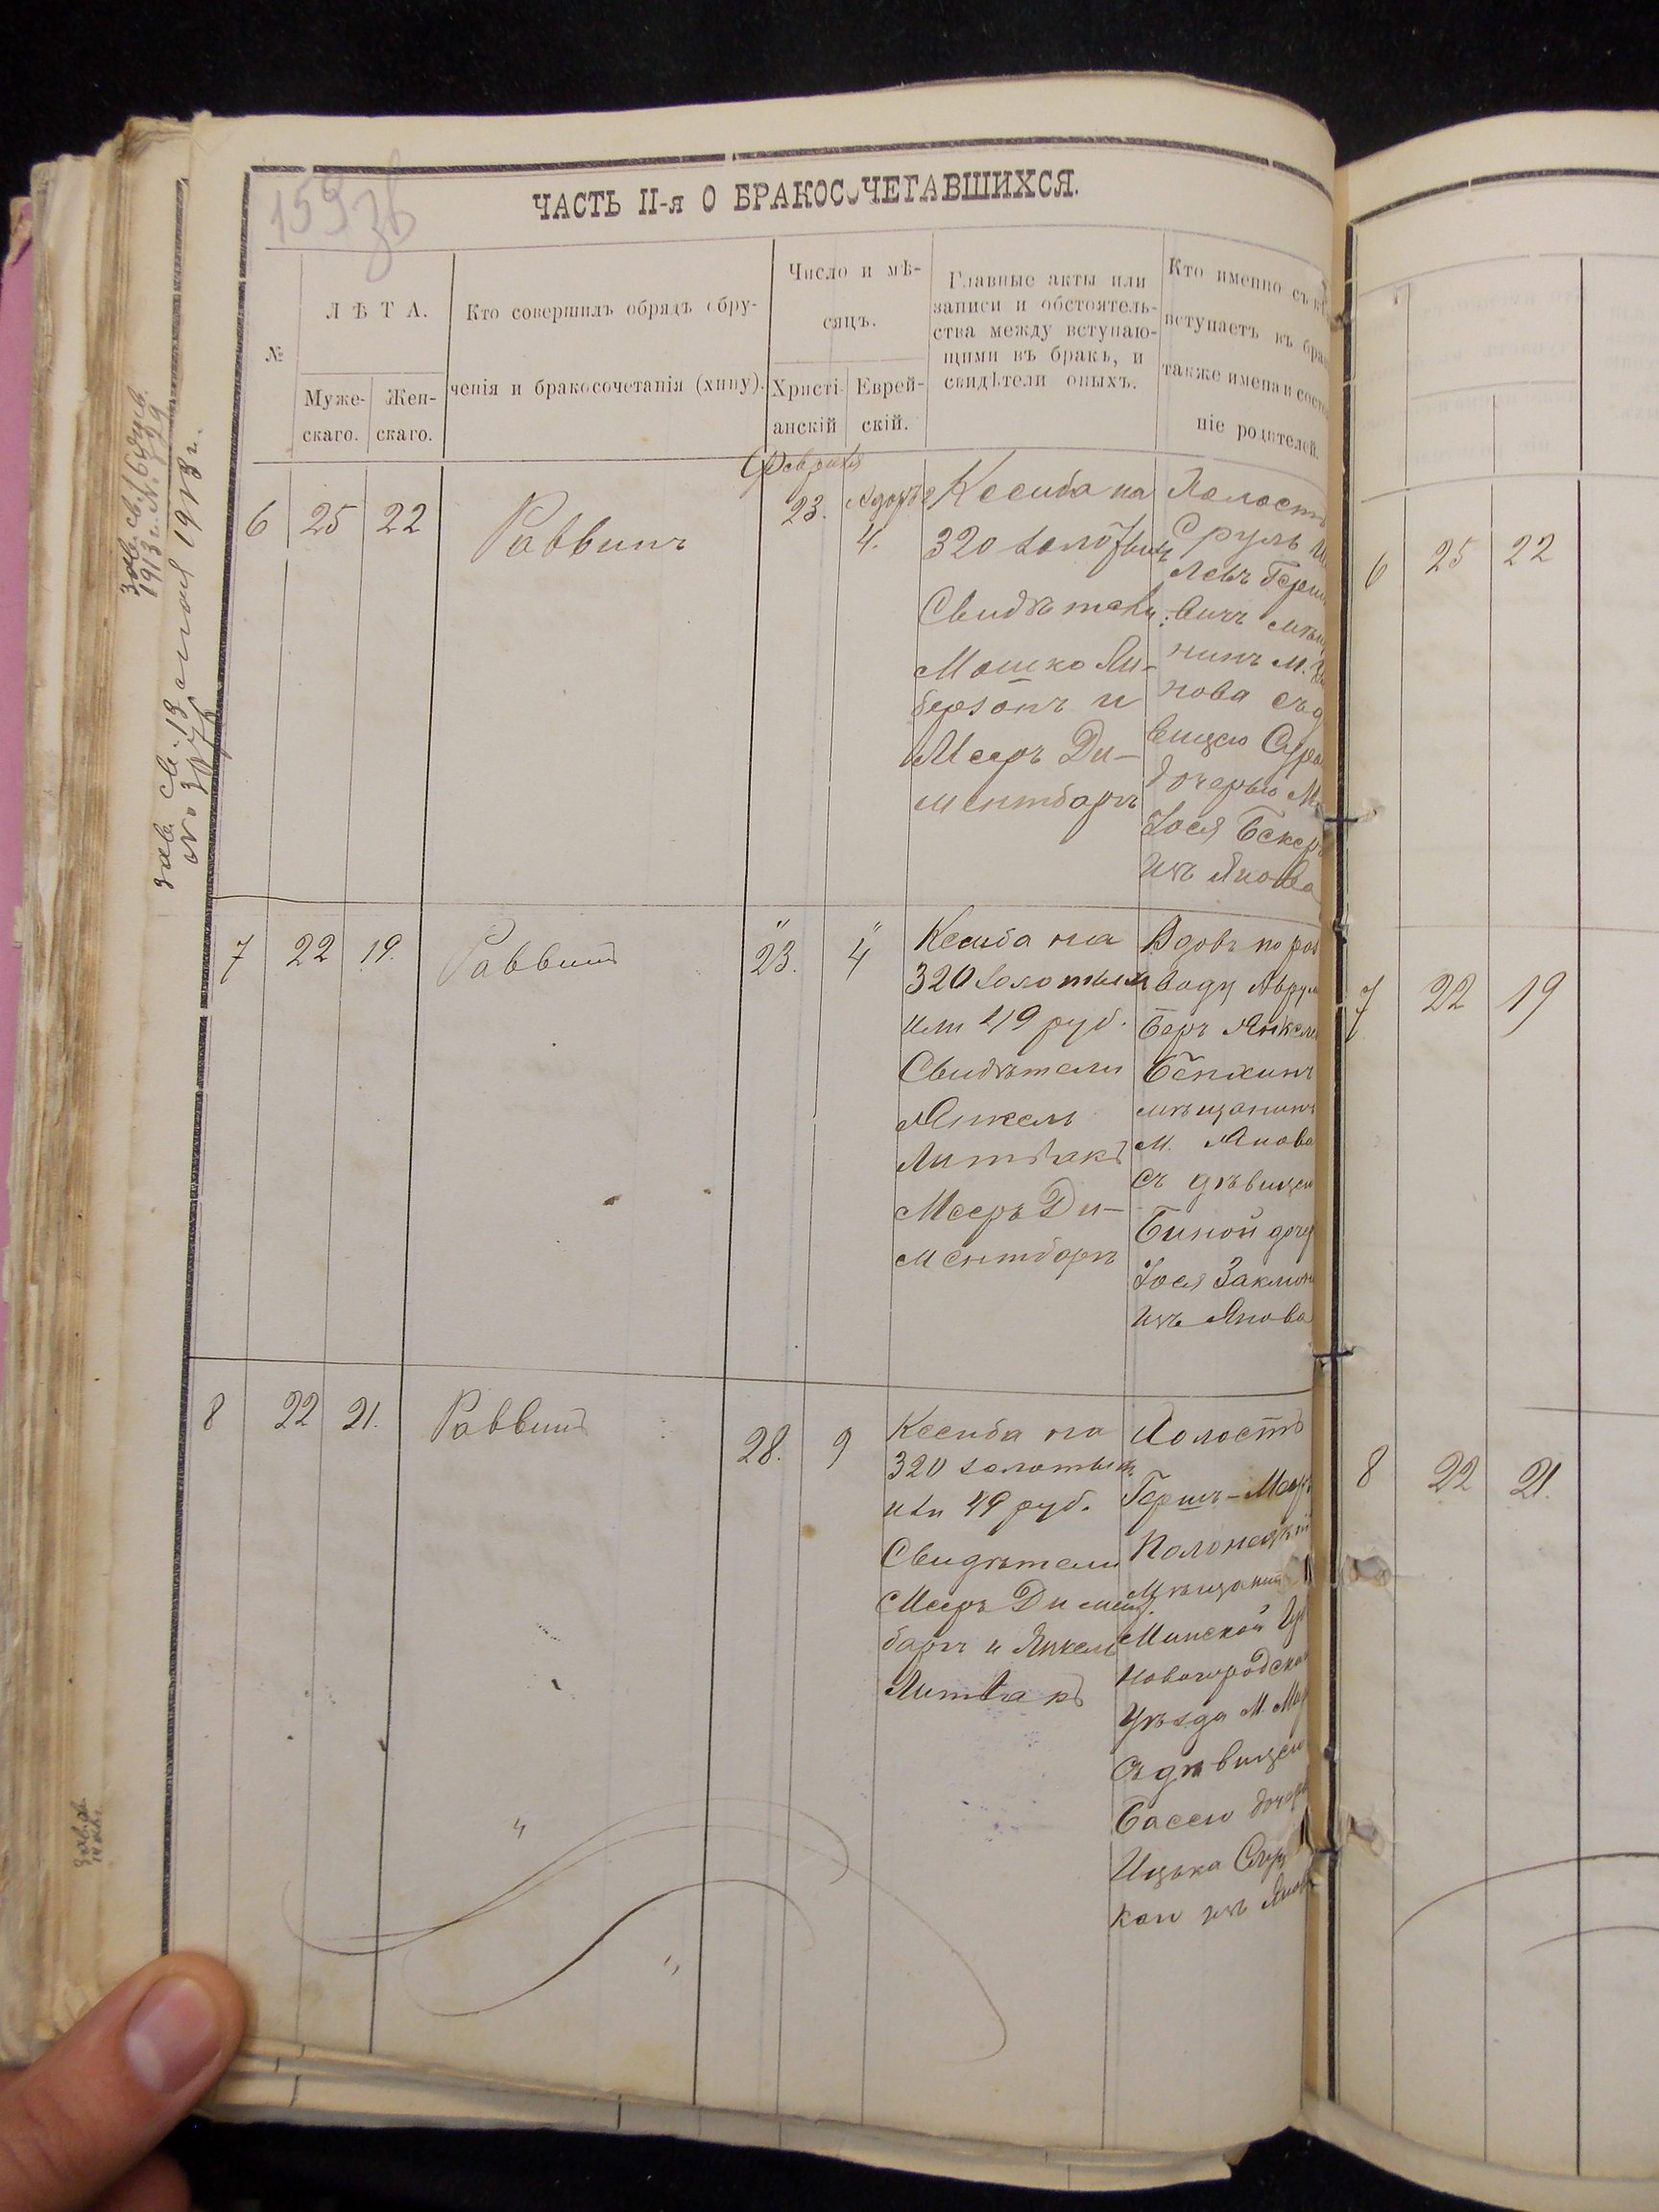 159 зв
ЧАСТЬ II-я О БРАКОСОЧЕТАВШИХСЯ.
№
Л Ѣ Т А.
Муже-
скаго.
Жен-
скаго.
Кто совершилъ обрядъ обру-
ченія и бракосочетанія (хипу).
Число и мѣ-
сяцъ.
Христі-
анскій
Еврей-
скій.
Главные акты или
записи и обстоятель-
ства между вступаю-
щими въ бракъ, и
свидѣтели оныхъ.
Кто именно съ кѣ
вступаетъ къ бра
также имена и состо
ніе родителей.
Февраля
6 25 22 Раввинъ 23. Адоръ 4.
Ксепба на
320 золотыхъ
Свидѣтели:
Мошко Ли-
берзонъ и
Мееръ Ди-
ментбаргъ
Холостъ
Сруль
Лейъ Герш
вичъ мѣщ
нинъ м. Я
нова съ д
вицею Сура
дочерью М
Іося Бекер
изъ Янова
7 22 19. Раввинъ
" "
23. 4
Ксепба на
320 золотыхъ
или 49 руб.
Свидѣтели
Янкель
Литвакъ
Мееръ Ди-
ментбаргъ
Вдовъ по раз
воду Аврум
Беръ Янкеле
мѣщанинъ
м. Янова
съ дѣвицею
Биной доче
Іося
изъ Янова
8 22 21. Раввинъ 28. 9
Ксепба на
320 золотыхъ
или 49 руб.
Свидѣтели
Мееръ Димент
баргъ и Янкель
Литвакъ
Холостъ
Гершъ-Мееръ
Полонецкій
Мѣщанинъ
Минской Гу
Новогородска
Уѣзда М. Ми
съ дѣвицею
Басею дочер
Ицька
изъ Янов
6 25 22
7 22 19
8 22 21.
зав. св. 19 1913 г.